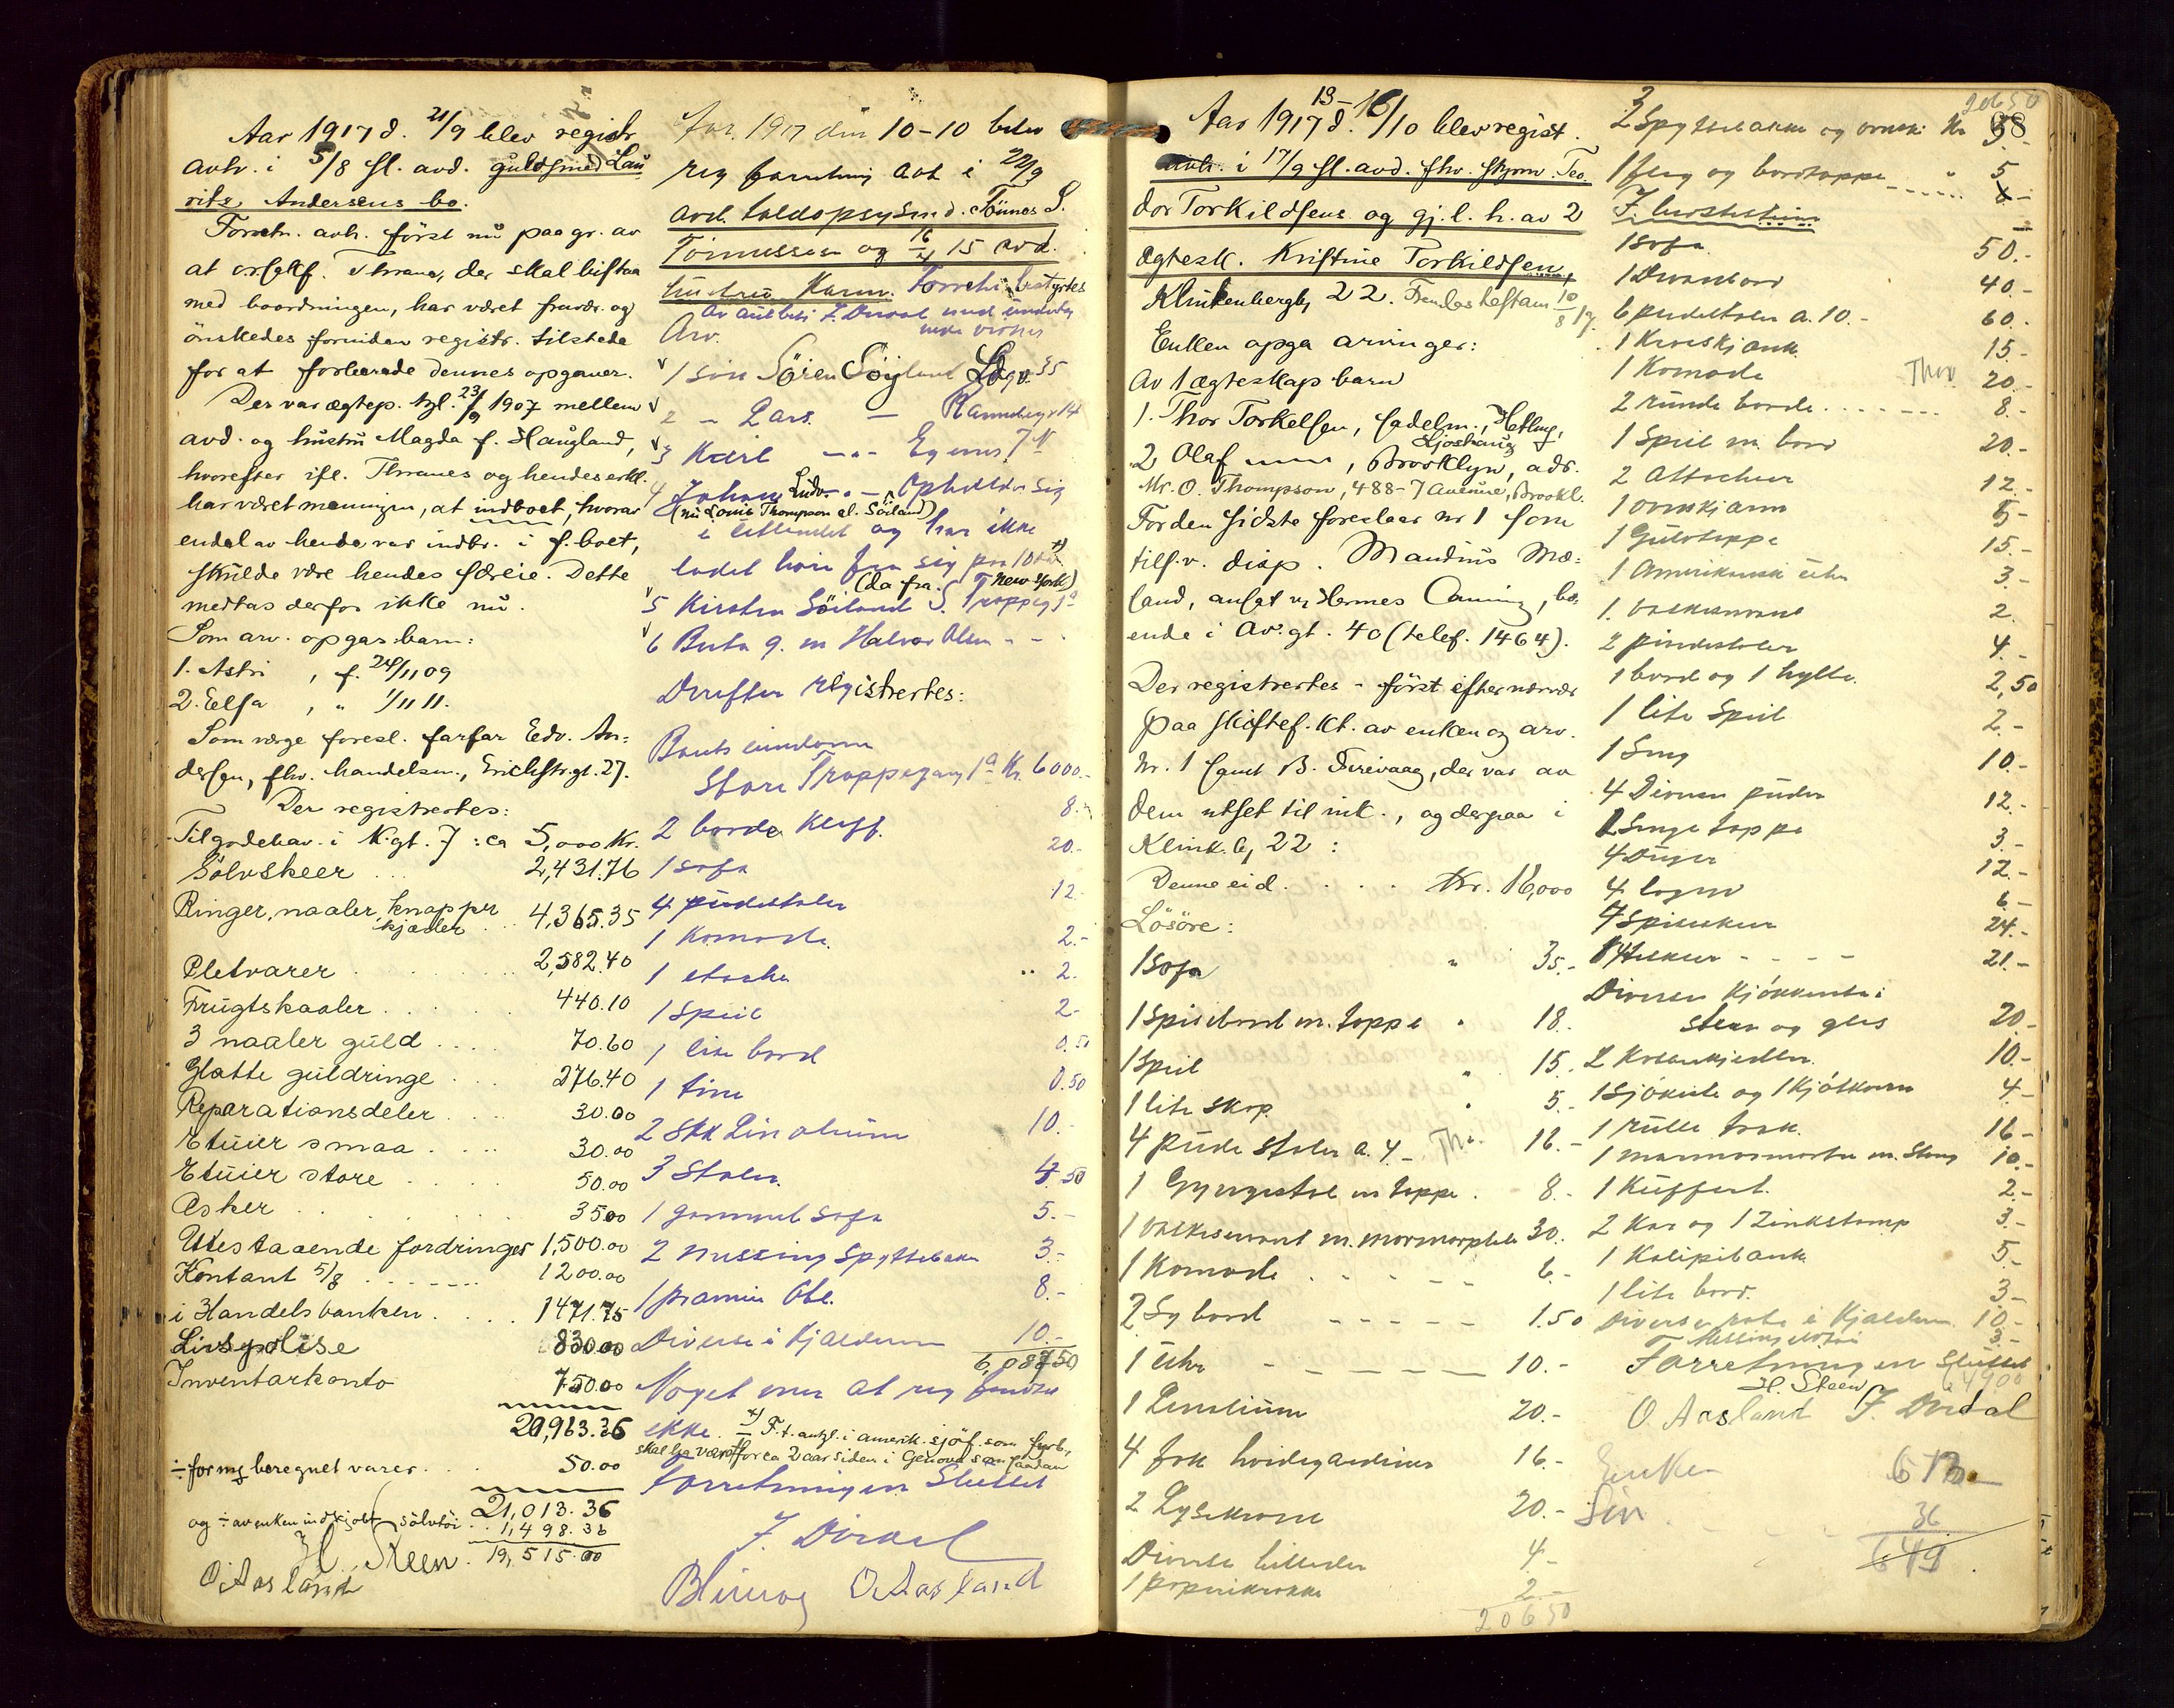 Aar 1917 d. 21/9 blev registr.
avh. i 5/8 hl. avd. guldsmed Lau
ritz Andersens bo.
Forretn. avh. først nu paa gr. av
at orsakf. Thrane, der skal bistaa
med boordningen, har været fravær. og
ønskedes forinden registr. tilstede
for at forberede dennes opgaver.
Der var ægtep. tgl. 23/9 1907 mellem
avd. og hustru Magda f. Haugland,
hvorefter ifl. Thranes og hendes erkl.
har været meningen, at indboet, hvorav
endel av hende var indbr. i f. boet,
skulde være hendes særeie. Dette
medtas derfor ikke nu.
Som arv. opgas: barn:
1. Astri , f. 24/11 09
2. Elsa , " 1/11 11.
Som værge foresl. farfar Edv. An=
dersen, fhv. handelsm., Erichstr.gt. 27.
Der registrertes:
Tilgodehav. i K.gt. 7 : ca 5,000 kr.
Sølvskeer ... 2,431.76
Ringer, naaler, knapper
kjæder .. 4,365.35
Pletvarer . . . 2,582.40
Frugtskaaler . . . 440.10
3 naaler guld . . . 70.60
Glatte guldringe . . . 276.40
Reparationsdeler . . . 30.00
Etuier smaa . . . 30.00
Etuier store . . . 50.00
Æsker . . . 35.00
Utestaaende fordringer 1,500.00
Kontant 5/8 . . . 1200.00
i Handelsbanken . . . 1471.75
Livspolise 830.00
Inventarkonto 750.00
20,963.36
÷ for mg beregnet varer . . 50.00
21,013.36
og ÷ av enken indkjøbt sølvtøi . . 1,498.36
19,515.00
H. Steen.
O. Aasland
Aar. 1917 den 10-10 blev
reg forretning avh i 22/9
avd. toldopsynsmd. Tönnes S.
Tönnessen og 16/4 15 avd.
hustru Karen. Forretn bestyrtes
av J. Dirdal med undertegnede vidner
Arv.
1 sön Sören Söyland Ldgv. 35
2 - Lars — 14
3 Karl -"- Egenes 7
4 Johan Ludv. -"- Opholder sig
(nu Louis Thompson el. Söiland)
i utlandet og har ikke
ladet høre fra sig paa 10 aar x)
(da fra New York)
5 Kirsten Söiland S. Trappeg 1a
6 Berta g. m Halvor Olsen - -
Derefter registrertes:
Boets eiendom
Store Trappegang 1a Kr. 6000.-
2 borde klaff. 8.-
1 sofa 20.-
4 pudestoler 12.
1 Komode. 2.-
1 etashe .. 2.
1 speil 2-
1 lite bord 0.50
1 tine 0.50
2 stk Linoleum 10.-
3 Stoler. 4.50
1 gammel sofa 5.-
2 messing spyttebakker 3.-
1 8.-
Diverse i Kjælderen 10.-
6,087.50
Noget mer at reg fandtes
ikke. x) F.t. antgl. i amerik. sjöf. som fyrb.,
skal ha været for ca 2 aar siden i Genova som saadan
Forretningen Sluttet
J. Dirdal
O. Aasland
Aar 1917 d. 13-16/10 blev regist.
avh. i 17/9 hl. avd. fhv. Teo.
dor Torkildsens og gj. l. h. av 2
ægtesk. Kristine Torkildsen,
Klinkenbergg 22.
Enken opga arvinger:
Av 1 ægteskap barn
1. Thor Torkelsen, sadelm., Hetleg,
2 Olaf —"—, Brooklyn, adr.
Mr. O. Thompson, 488-7 Avenue, Brookl.
For den sidste foreslaar nr 1 som
tilf.v. disp. Maudius Mæ=
land, ansat v/ Hermes Caning, bo
ende i Av.gt. 40 (telef. 1464).
Der registrertes - först efter
paa skiftef. kt. av enken og arv.
nr. 1 samt B. , der var av
dem utset til , og derpaa i
Klink.bg 22 :
Denne eid. . . . . Kr. 16,000
Lösöre:
1 sofa " 35.-
1 spisebord m. teppe " 18.
1 speil " 15.
1 lite skap " 5.-
4 pude stoler a. 4. - 16.-
1 Gyngestol m teppe . 8.-
1 vaskeservant m. marmorplate 30.
1 Komode . . . 6.-
2 Sybord - - - 1.50
1 uhr - - - 10.-
1 Linolium 20.-
4 16.-
2 Lysekrone 20.-
Diverse billeder 4.-
1 papirkurv 2.-
206 50
206 50
68
2 Spyttebakke og Kr 3.-
1 flag og bordteppe " 5
1 sofa 50.-
1 Divanbord 40.-
6 pudestoler a. 10.- 60.
1 15.-
1 Komode 20.-
2 runde borde . . . . 8.-
1 Speil m. bord 20.-
2 12.-
1 5-
1 Gulvteppe 15.-
1 Amerikansk uhr 3.-
1. vaskeservant 2.
2 pindestoler 4.-
1 bord og 1 hylle. 2,50
1 lite speil 2.-
1 Seng 10.-
4 Diverse puder 12.-
1 Senge teppe 3.-
4 Duger 12.-
4 lagner 6.-
7 Spiseskeer 24.-
14 teskeer - - - 21.-
Diverse Kjøkkentøi
sten og glas 20.-
2 Kobberkjedler. 10.-
1 og 1 Kjötkvern 4.-
1 rulle 16-
1 marmormorter m. Steng 10.-
1 Kuffert. 2.-
2 Kar og 1 Zinkstamp 3.-
1 5.-
1 lite bord. 3-
Diverse i Kjælderen 10.-
3.-
Forretningen Sluttet
649 00
H. Steen
O. Aasland J. Dirdal
Enken 613.—
36
649